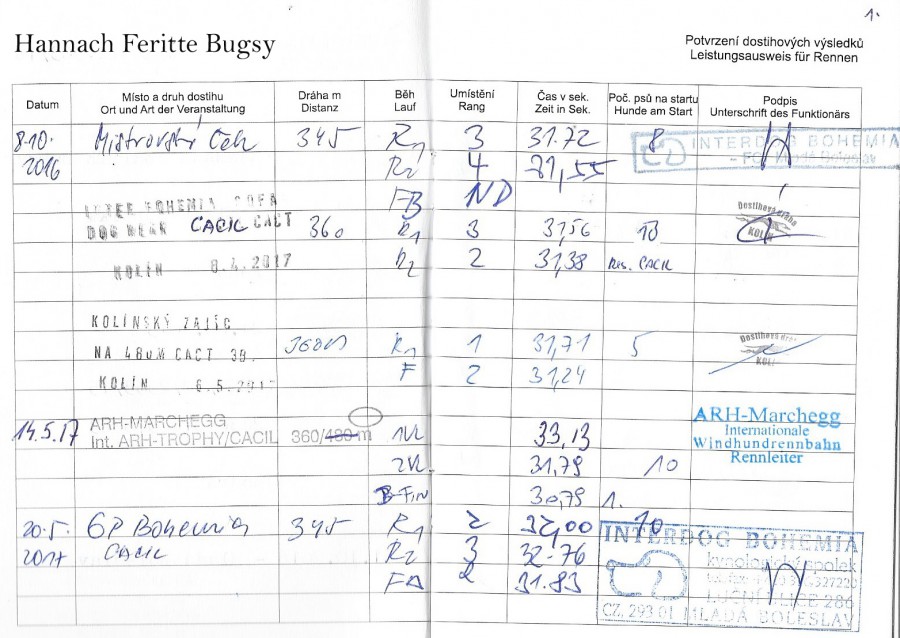 1.
Hannach Feritte Bugsy
Potvrzení dostihových výsledků
Leistungsausweis für Rennen
Datum Místo a druh dostihu Dráha m Běh Umístění Čas v sek. Poč. psů na startu Podpis
Ort und Art der Veranstaltung Distanz Lauf Rang Zeit in Sek. Hunde am Start Unterschrift des Funkionárs
8.10. Mistrovství Čech 345 R1 3 31.72 8 INTERDOG BOHEMIA
2016 R2 4 31,55
FB ND
CACIL CACT 360 R1 3 31,56 10 Dostihová dráha KOLÍN
KOLÍN 8.4.2017 R2 2 31,38 Res. CACIL
KOLÍNSKÝ ZAJÍC
NA 480M CACT 30. R1 1 31,71 5 Dostihová dráha KOLÍN
KOLÍN 6.5.2017 F 2 31,24
14.5.17 ARH-MARCHEGG
Int. ARH-TROPHY/CACIL 360/480 m 1VL 33,13
ARH-Marchegg
Internationale
Windhundrennbahn
Rennleiter
2VL 31,79 10
B-FIN 30,79 1.
20.5. GP Bohemia 345 R1 2 32,00 10
2017 CACIL R2 3 32.76
FA 2 31.83
INTERDOG BOHEMIA
kynologický spolek
LUČNÍ ULICE 286
CZ, 293 01 MLADÁ BOLESLAV